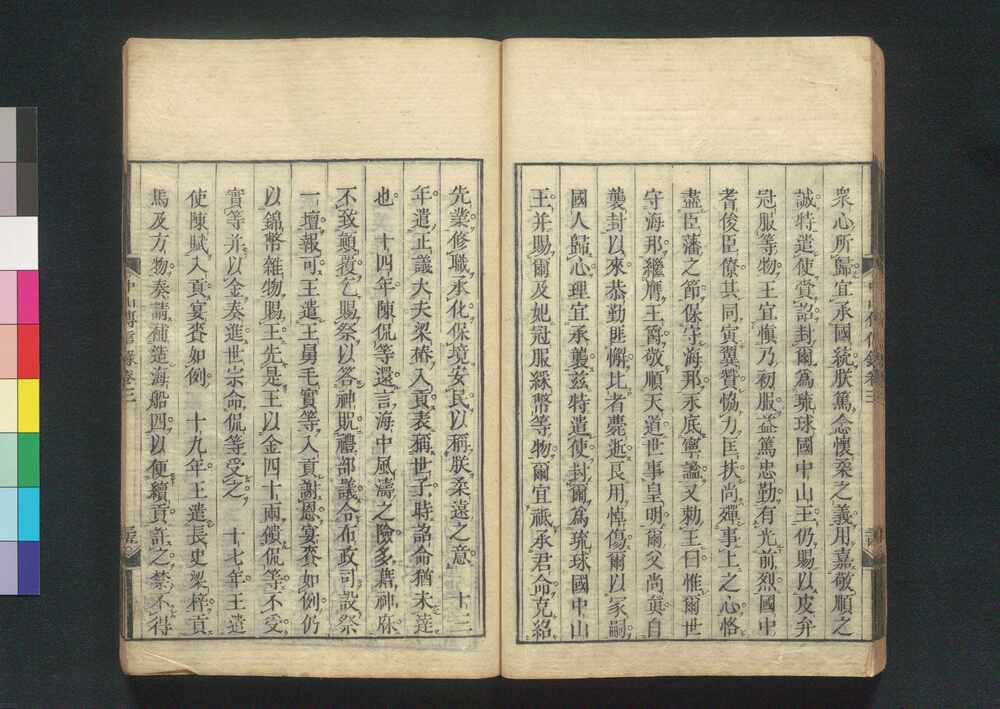 衆心所歸宜承國統朕篤念懷柔之義用嘉敬順之
誠特遣使賫詔封爾爲琉球國中山王仍賜以皮弁
冠服等物王宜愼乃初服益篤忠勤有光前烈國中
耆俊臣僚其同寅翼贊恊力匡扶尚殫事上之心恪
盡臣藩之節保守海邦永底寧謐又勅王曰惟爾世
守海邦繼膺王爵敬順天道世事皇明爾父尚眞自
襲封以來恭勤匪懈比者薨逝良用悼傷爾以家嗣
國人歸心理宜承襲兹特遣使封爾爲琉球國中山
王并賜爾及妃冠服綵幣等物爾宜祗承君命克紹
先業修職承化保境安民以稱朕柔遠之意 十三
年遣正議大夫梁椿入貢表稱世子時詔命猶未達
也 十四年陳侃等還言海中風濤之險多藉神庥
不致顚覆乞賜祭以答神貺禮部議令布政司設祭
一壇報可王遣王舅毛實等入貢謝恩宴賚如例仍
以錦幣雜物賜王先是王以金四十兩饋侃等不受
實等并以金奏進世宗命侃等受之 十七年王遣
使陳賦入貢宴賚如例 十九年王遣長史梁梓貢
馬及方物奏請補造海船四以便續貢許之禁不得
中山傳信錄卷三